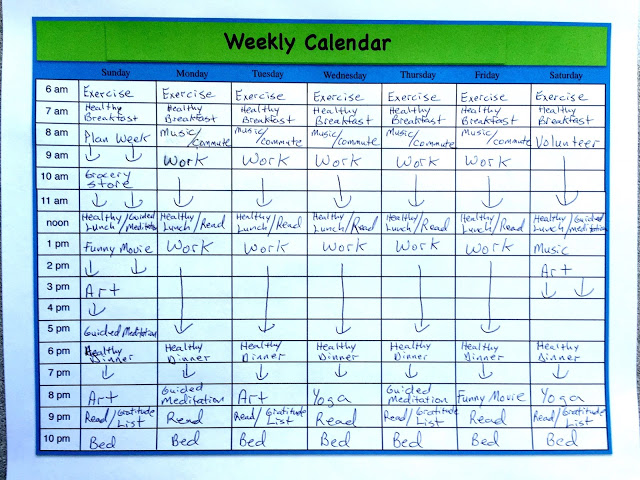 Weekly Calendar
Sunday Monday Tuesday Wednesday Thursday Friday Saturday
6 am Exercise Exercise Exercise Exercise Exercise Exercise Exercise
7 am Healthy Breakfast Healthy Breakfast Healthy Breakfast Healthy Breakfast Healthy Breakfast Healthy Breakfast Healthy Breakfast
8 am Plan Week Music/commute Music/commute Music/commute Music/commute Music/commute Volunteer
9 am Work Work Work Work Work
10 am Grocery store
11 am
noon Healthy Lunch/Guided Meditatn Healthy Lunch/Read Healthy Lunch/Read Healthy Lunch/Read Healthy Lunch/Read Healthy Lunch/Read Healthy Lunch/Guided meditation
1 pm Funny Movie Work Work Work Work Work Music
2 pm Art
3 pm Art
4 pm
5 pm Guided Meditation
6 pm Healthy Dinner Healthy Dinner Healthy Dinner Healthy Dinner Healthy Dinner Healthy Dinner Healthy Dinner
7 pm
8 pm Art Guided Meditation Art Yoga Guided Meditation Funny Movie Yoga
9 pm Read/Gratitude List Read Read/Gratitude List Read Read/Gratitude List Read Read/Gratitude List
10 pm Bed Bed Bed Bed Bed Bed Bed